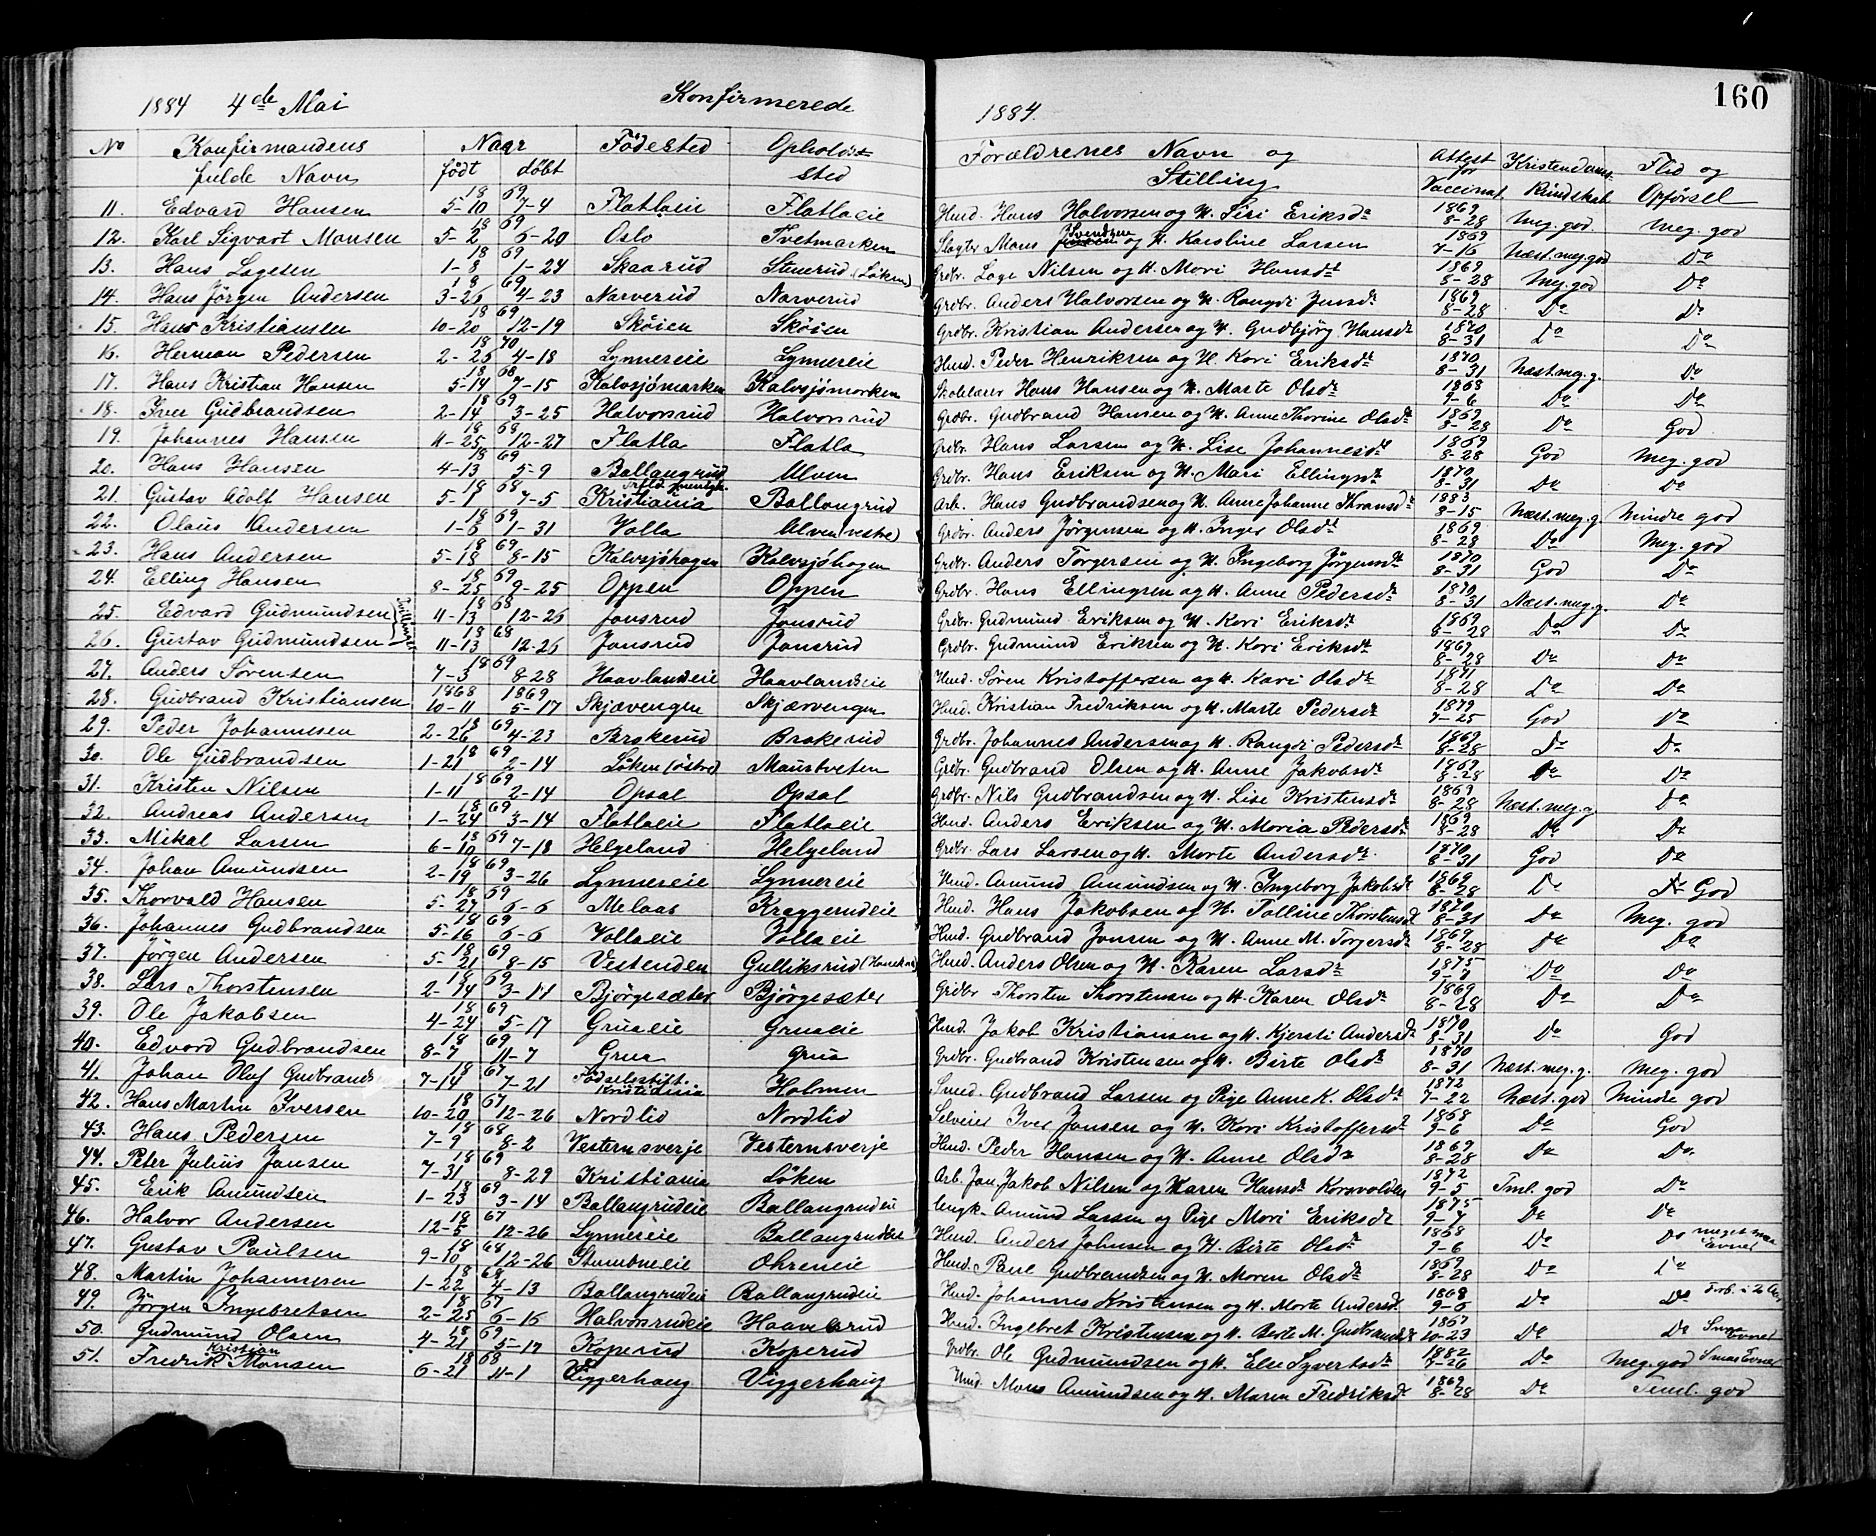 160
1884 4de Mai Konfirmerede 1884.
No Konfirmandens fulde Navn Naar født døbt Fødested Opholdssted Forældrenes Navn og Stilling Attest for Vaccinat. Kristendoms Kundskab Flid og Opførsel
11. Edvard Hansen 18 69 5-10 7-4 Flatlaeie Flatlaeie Husd. Hans Halvorsen og H. Siri Eriksdr 1869 8-28 Meg. god Meg. god
12. Karl Sigvart Monsen 18 69 5-2 6-20 Oslo Tvetmarken Slagter Mons Svendsen og H. Karoline Larsen 1869 7-16 Næst. meg. god Do
13. Hans Lagesen 18 69 1-8 1-24 Skaarud Stuerud (Løken) Grdbr. Lage Nilsen og H. Mari Hansdr 1869 8-28 Meg. god Do
14. Hans Jørgen Andersen 18 69 3-26 4-23 Narverud Narverud Grdbr. Anders Halvorsen og H. Rangdi Jensdr 1869 8-28 Do Do
15. Hans Kristiansen 18 69 10-20 12-19 Skøien Skøien Grdbr. Kristian Andersen og H. Gudbjørg Hansdr 1870 8-31 Do Do
16. Herman Pedersen 18 70 2-25 4-18 Lynnereie Lynnereie Husd. Peder Henriksen og H. Kari Eriksdr 1870 8-31 Næst. meg. g. Do
17. Hans Kristian Hansen 18 68 5-14 7-15 Kalvsjømarken Kalvsjømarken Skolelærer Hans Hansen og H. Marte Olsdr 1868 9-6 Do Do
18. Iver Gudbrandsen 18 69 2-14 3-25 Halvorsrud Halvorsrud Grdbr. Gudbrand Hansen og H. Anne Thorine Olsdr 1869 8-28 Do God
19. Johannes Hansen 18 68 11-25 12-27 Flatla Flatla Grdbr. Hans Larsen og H. Lise Johannesdr 1869 8-28 God Meg. god
20. Hans Hansen 18 69 4-13 5-9 Ballangrud Ulven Grdbr. Hans Eriksen og H. Mari Ellingsdr 1870 8-31 Do Do
21. Gustav Adolf Hansen 18 68 5-1 7-5 Kristiania Ballangrud Arb. Hans Gudbrandsen og H. Anne Johanne Thransdr 1883 8-15 Næst. meg. g. Mindre god
22. Olaus Andersen 18 69 1-3 1-31 Volla Ulven (vestre) Grdbr. Anders Jørgensen og H. Inger Olsdr 1869 8-28 Do Meg. god
23. Hans Andersen 18 69 5-18 8-15 Kalvsjøhagen Kalvsjøhagen Grdbr. Anders Torgersen og H. Ingeborg Jørgensdr 1870 8-31 God Do
24. Elling Hansen 18 69 8-25 9-25 Oppen Oppen Grdbr. Hans Ellingsen og H. Anne Pedersdr 1870 8-31 Næst. meg. g. Do
25. Edvard Gudmundsen Tvillinger 18 68 11-13 12-26 Jonsrud Jonsrud Grdbr. Gudmund Eriksen og H. Kari Eriksdr 1869 8-28 Do Do
26. Gustav Gudmundsen 18 68 11-13 12-26 Jonsrud Jonsrud Grdbr. Gudmund Eriksen og H. Kari Eriksdr 1869 8-28 Do Do
27. Anders Sørensen 18 69 7-3 8-28 Haavlandseie Haavlandseie Husd. Søren Kristoffersen og H. Kari Olsdr 1871 8-28 Do Do
28. Gudbrand Kristiansen 1868 1869 10-11 5-17 Skjævengen Skjærvengen Husd. Kristian Fredriksen og H. Marte Pedersdr 1879 7-25 God Do
29. Peder Johannesen 18 69 2-26 4-23 Brokerud Brokerud Grdbr. Johannes Andersen og H. Rangdi Pedersdr 1869 8-28 Do Do
30. Ole Gudbrandsen 18 69 1-21 2-14 Løken (østre) Maustveten Grdbr. Gudbrand Olsen og H. Anne Jakobsdr 1869 8-28 Do Do
31. Kristen Nilsen 18 69 1-11 2-14 Opsal Opsal Grdbr. Nils Gudbrandsen og H. Lise Kristensdr 1869 8-28 Næst. meg. g. Do
32. Andreas Andersen 18 69 1-24 3-14 Flatlaeie Flatlaeie Husd. Anders Eriksen og H. Maria Pedersdr 1869 8-28 Do Do
33. Mikal Larsen 18 69 6-10 7-18 Helgeland Helgeland Grdbr. Lars Larsen og H. Marte Andersdr 1870 8-31 God Do
34. Johan Amundsen 18 69 2-19 3-26 Lynnereie Lynnereie Husd. Amund Amundsen og H. Ingeborg Jakobsdr 1869 8-28 Do God
35. Thorvald Hansen 18 69 5-27 6-6 Melaas Kraggerudeie Husd. Hans Jakobsen og H. Talline Thorstensdr 1870 8-31 Do Meg. god
36. Johannes Gudbrandsen 18 69 5-16 6-6 Vollaeie Vollaeie Husd. Gudbrand Jonsen og H. Anne M. Torgersdr 1869 8-28 Do Do
37. Jørgen Andersen 18 69 5-21 8-15 Vestenden Gulliksrud Husd. Anders Olsen og H. Karen Larsdr 1875 9-3 Do Do
38. Lars Thorstensen 18 69 2-14 3-11 Bjørgesæter Bjørgesæter Grdbr Thorsten Thorstensen og H. Karen Olsdr 1869 8-28 Do Do
39. Ole Jakobsen 18 69 4-24 5-17 Gruaeie Gruaeie Husd. Jakob Kristiansen og H. Kjersti Andersdr 1870 8-31 Do God
40. Edvard Gudbrandsen 18 69 8-7 11-7 Grua Grua Grdbr. Gudbrand Kristensen og H. Birte Olsdr 1870 8-31 Næst. meg. g. Meg. god
41. Johan Oluf Gudbrands 18 67 7-14 7-21 Fødselsstift. Kristiania Holmen Smed. Gudbrand Larsen og Pige Anne K. Olsdr 1872 7-22 Næst. god Mindre god
42. Hans Martin Iversen 18 67 10-20 12-26 Nordlid Nordlid Selveier Iver Jonsen og H. Kari Kristoffersdr 1868 9-6 Do God
43. Hans Pedersen 18 68 7-9 8-2 Vesternsverje Vesternsverje Husd. Peder Hansen og H. Anne Olsdr 1869 8-28 Do Do
44. Peter Julius Jansen 18 69 7-31 8-29 Kristiania Løken Arb. Jan Jakob Nilsen og Karen Hansdr Korsvolden 1872 9-5 Teml. god Do
45. Erik Amundsen 18 69 1-23 3-14 Ballangrudeie Ballangrudeie Ungk. Amund Larsen og Pige Mari Eriksdr 1875 9-7 Do Do
46. Halvor Andersen 18 67 12-5 12-26 Lynnereie Ballangrudeie Husd. Anders Johnsen og H. Birte Olsdr 1868 9-6 Do Do meget smaa Evner
47. Gustav Paulsen 18 68 9-10 12-26 Stumbneeie Ohreneie Husd. Paul Gudbrandsen og H. Maren Olsdr 1869 8-28 Do Do
48. Martin Johannesen 18 68 1-22 4-13 Ballangrudeie Ballangrudeie Husd. Johannes Kristensen og H. Marte Andersdr 1868 9-6 Do Do
49. Jørgen Ingebretsen 18 67 2-25 6-16 Halvorsrudeie Haavelsrud Husd. Ingebret Kristensen og H. Berte M. Gudbrandsdr 1867 10-23 Do Do Smaa Evner
50. Gudmund Olsen 18 69 4-21 5-17 Koperud Koperud Grdbr. Ole Gudmundsen og H. Else Syvertsdr 1882 7-26 Do Meg. god Smaa Evner
51. Fredrik Kristian Monsen 18 68 6-21 11-1 Viggerhaug Viggerhaug Husd. Mons Amundsen og H. Maren Fredriksdr 1869 8-28 Do Teml. god